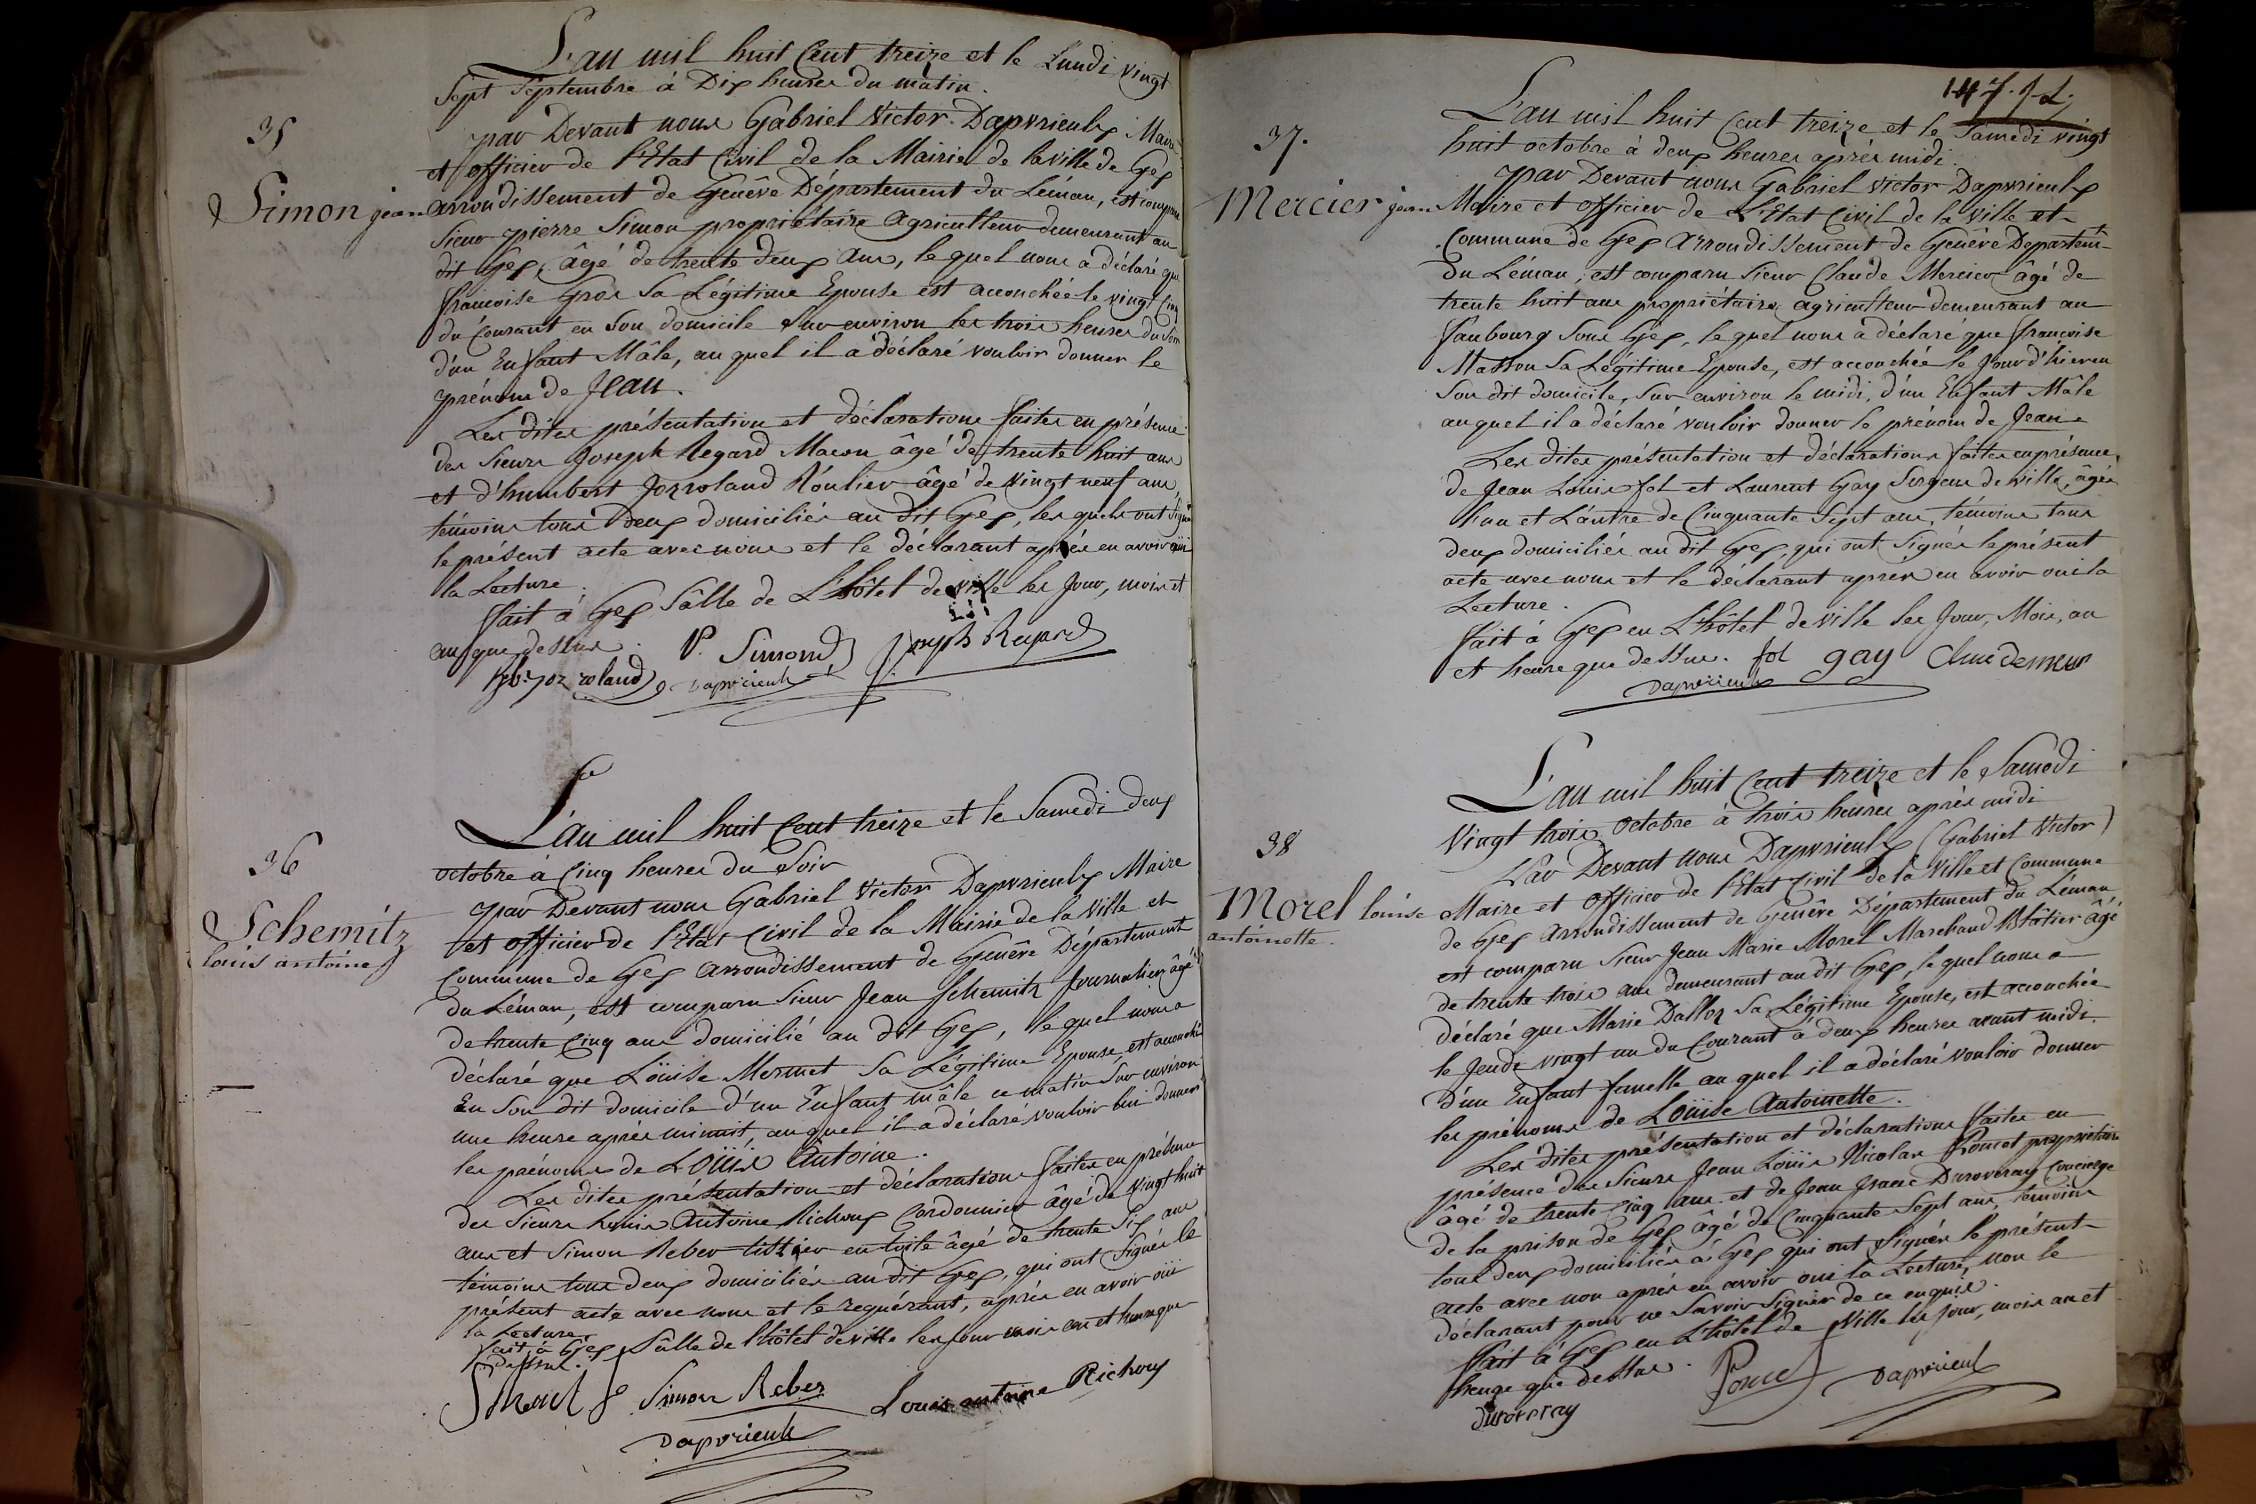 35
Simon jean
L'an mil huit Cent treize et le Lundi vingt
Sept Septembre à Dix heures du matin.
par Devant nous Gabriel Victor Dapvrieulx Maire
et officier de l'Etat Civil de la Mairie de la ville de Gex
arrondissement de Genêve Département du Léman, est comparu
Sieur pierre Simon propriétaire agriculteur demeurant au
dit Gex, âgé de trente deux ans, le quel nous a déclaré que
francoise Gros Sa Légitime Epouse est accouchée le vingt Cinq
du Courant en Son domicile Sur environ les trois heures du Soir
d'un Enfant Mâle, au quel il a déclaré vouloir donner le
prénom de Jean.
Les dites présentation et déclarations faites en présence
des Sieurs Joseph Regard Macon âgé de trente huit ans
et d'humbert Jozroland Roulier âgé de Vingt neuf ans,
témoins tous Deux domiciliés au dit Gex, les quels ont Signé
le présent acte avec nous et le déclarant après en avoir oüi
la Lecture.
fait à Gex Sâlle de L'hôtel de ville les Jour, mois et
an que dessus. P. Simond Joseph Regard
hb. joz roland Dapvrieulx
36
Schemitz
louis antoine
L'an mil huit Cent treize et le Samedi deux
octobre à Cinq heures du Soir
par Devant nous Gabriel Victor Dapvrieulx Maire
et officier de l'Etat Civil de la Mairie de la Ville et
Commune de Gex arrondissement de Genêve Département
du Léman, est comparu Sieur Jean Schemitz Journalier âgé
de trente Cinq ans domicilié au dit Gex, le quel nous a
déclaré que Loüise Mermet Sa Légitime Epouse, est accouchée
En Son dit domicile d'un Enfant mâle ce matin Sur environ
une heure après minuit, au quel il a déclaré vouloir lui donner
les prénoms de Loüis Antoine.
Les dites présentation et déclarations faites en présence
des Sieurs Louis Antoine Richoux Cordonnier âgé de Vingt huit
ans et Simon Reber tittier en toile âgé de trente Six ans
témoins tous deux domiciliés au dit Gex, qui ont Signés le
présent acte avec nous et le requérant, après en avoir oüi
la Lecture,
fait à Gex Sâlle de l'hôtel de ville les Jour mois an et heure que
dessus.
Simon Reber Louis antoine Richoux
Dapvrieulx
37.
Mercier jean
L'an mil huit Cent treize et le Samedi vingt
huit octobre à deux heures après midi.
par Devant nous Gabriel Victor Dapvrieulx
Maire et officier de L'Etat Civil de la Ville et
Commune de Gex arrondissement de Genêve Departemt
du Léman, est comparu Sieur Claude Mercier âgé de
trente huit ans propriétaire agriculteur demeurant au
faubourg Sous Gex, le quel nous a déclaré que francoise
Masson Sa Légitime Epouse, est accouchée le Jour d'hier en
Son dit domicile, Sur environ le midi, d'un Enfant Mâle
au quel il a déclaré vouloir donner le prénom de Jean
Les dites présentation et déclarations faites en présence,
de Jean Louis fol et Laurent Gay Sergens de ville, âgés
L'un et L'autre de Cinquante Sept ans, témoins tous
deux domiciliés au dit Gex, qui ont Signés le présent
acte avec nous et le déclarant après en avoir oui la
Lecture.
fait à Gex en L'hôtel de Ville les Jour, Mois, an
et heure que dessus. fol gay
Dapvrieulx
38
Morel louise
antoinette.
L'an mil huit Cent treize et le Samedi
Vingt trois octobre à trois heures après midi
Par Devant nous Dapvrieulx (Gabriel Victor)
Maire et officier de l'Etat Civil de la Ville et Commune
de Gex arrondissement de Genêve Département du Léman
est comparu Sieur Jean Marie Morel Marchand Blatier âgé
de trente trois ans demeurant au dit Gex, le quel nous a
déclaré que Marie Dalloz Sa Légitime Epouse, est accouchée
le Jeudi vingt un du Courant à deux heures avant midi.
d'un Enfant femelle au quel il a déclaré vouloir donner
les prénoms de Loüise Antoinette.
Les dites présentation et déclarations faites en
présence des Sieurs Jean Loüis Nicolas Poncet propriétaire
âgé de trente Cinq ans et de Jean franc Duroveray Concierge
de la prison de Gex âgé de Cinquante Sept ans, témoins
tous deux domiciliés à Gex qui ont Signés le présent
acte avec nou après en avoir oui la Lecture, non le
déclarant pour ne Savoir Signer de ce enquis.
fait à Gex en L'hôtel de Ville les Jour, mois an et
heure que dessus. Poncet Dapvrieulx
Duroveray